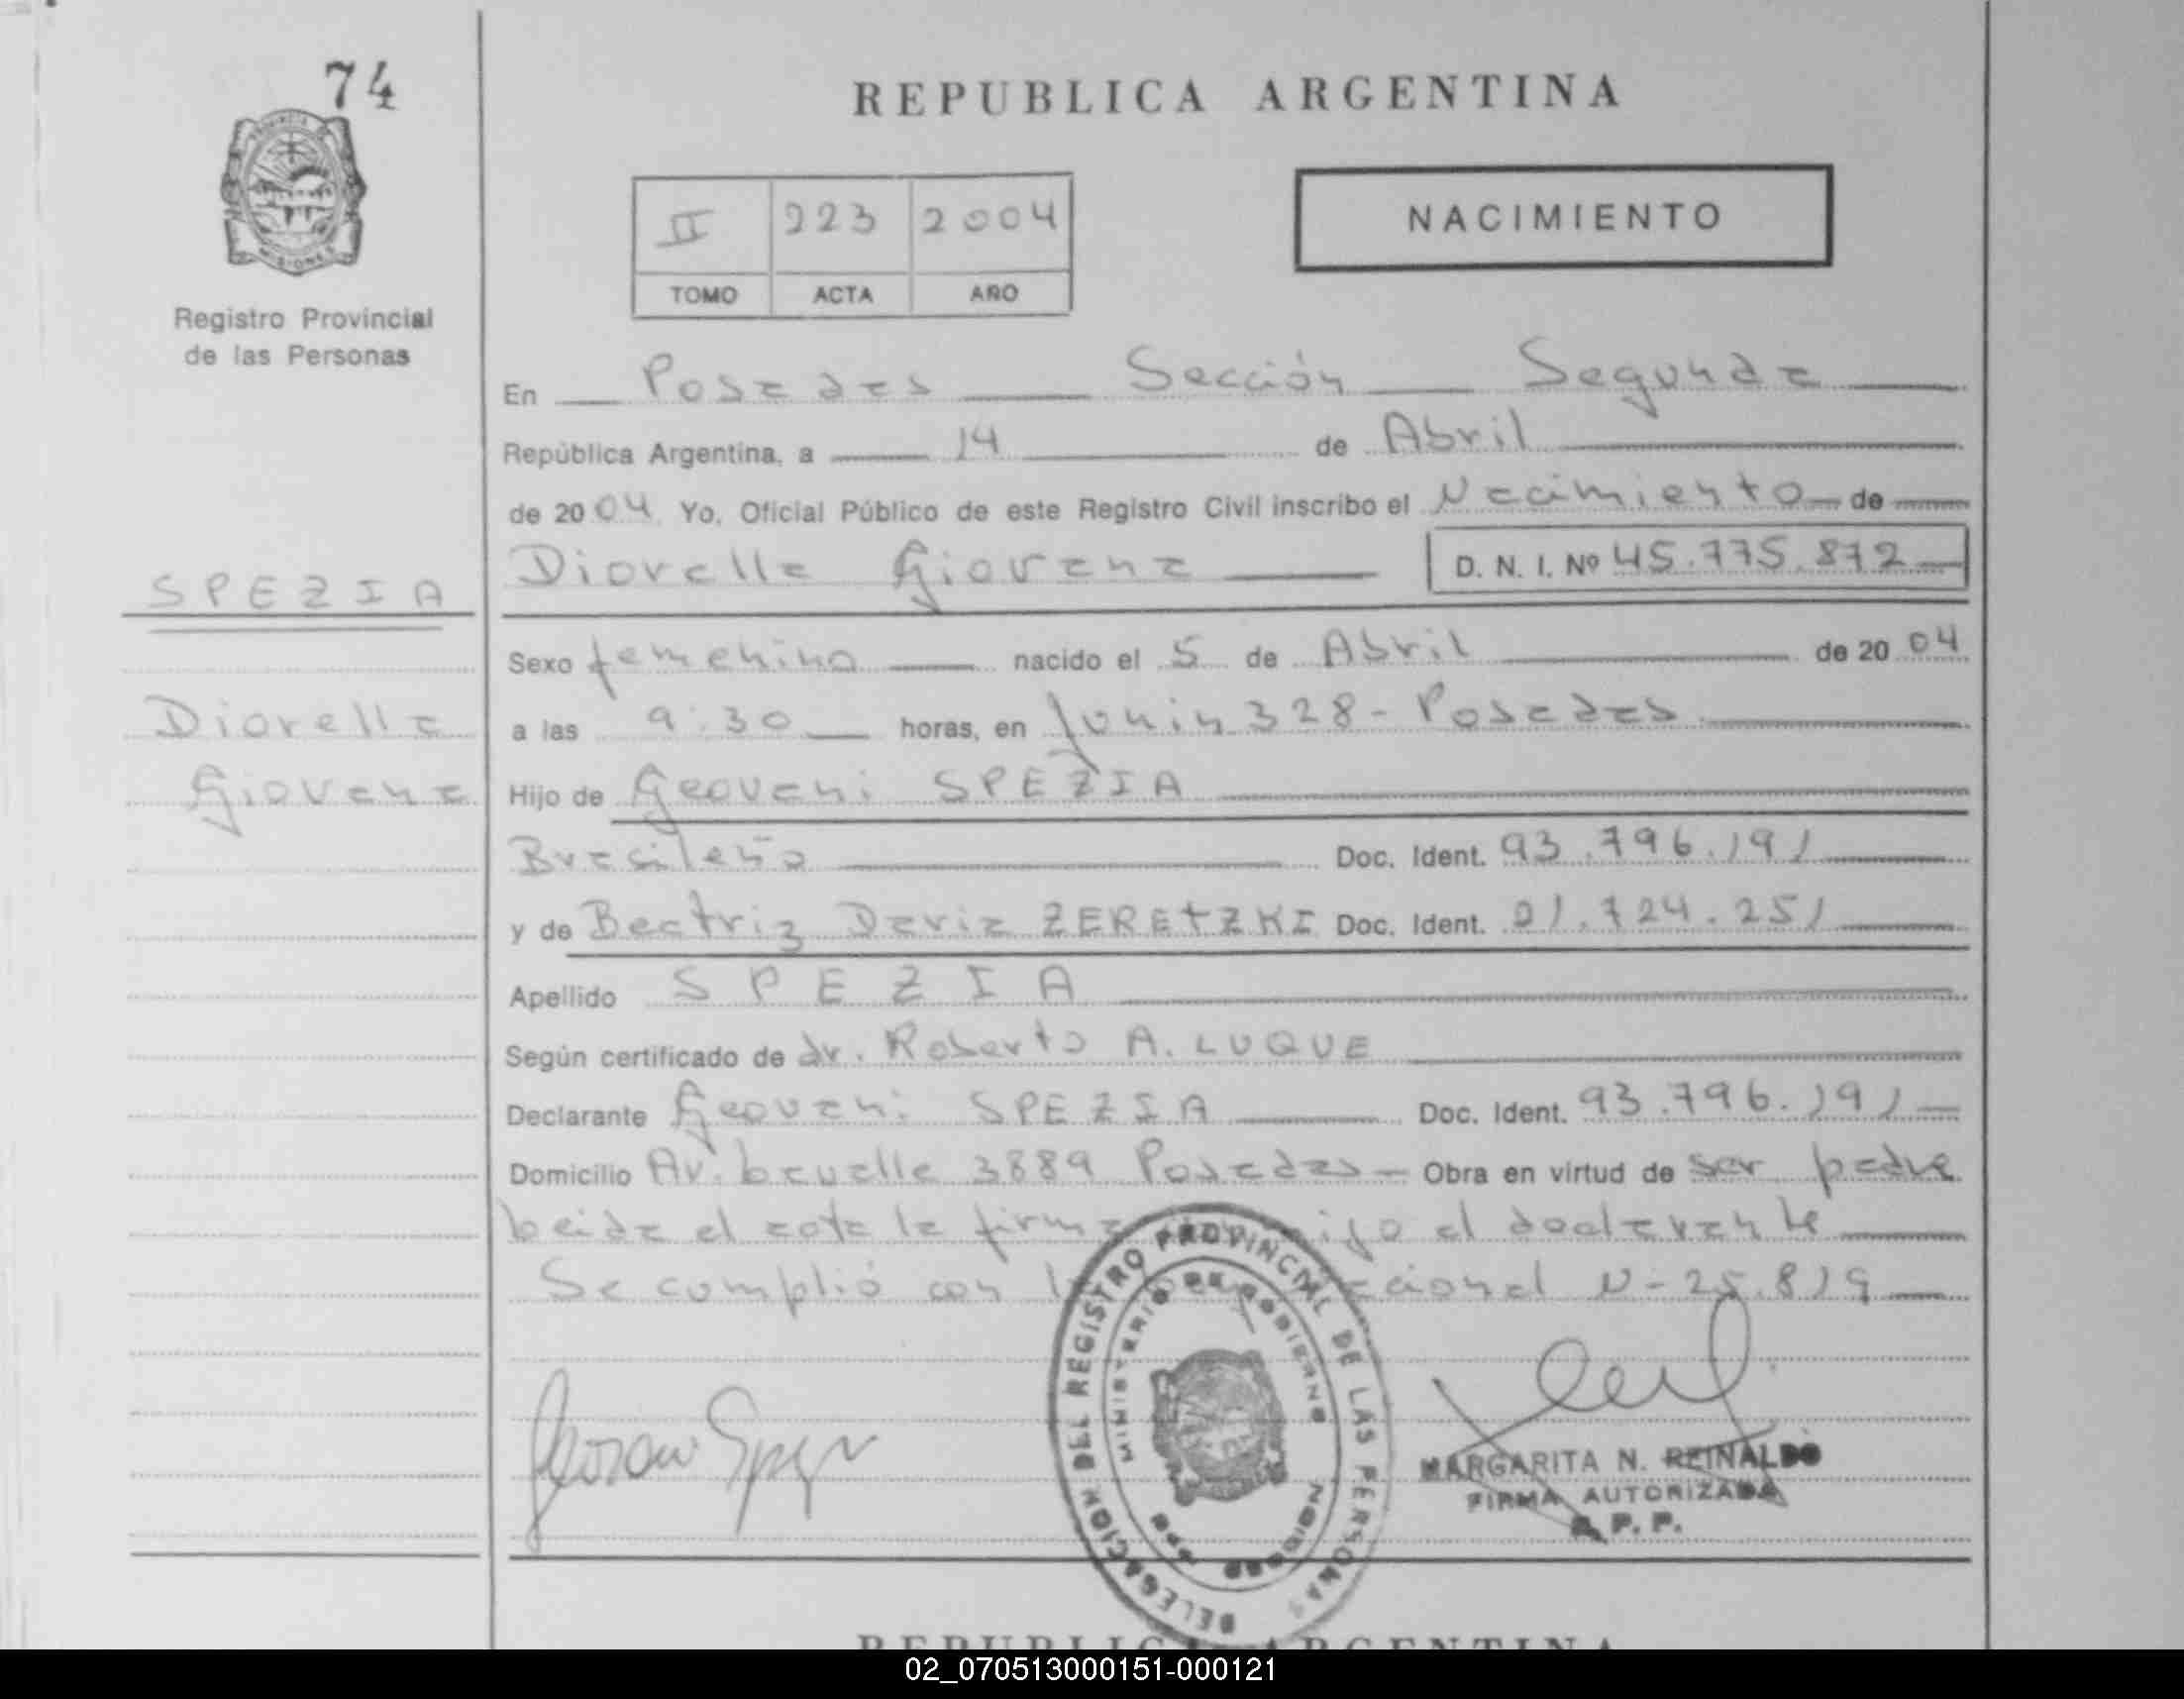 74
REPUBLICA ARGENTINA
II 223 2004
TOMO ACTA AÑO
NACIMIENTO
Registro Provincial
de las Personas
En Posadas Sección Segunda
República Argentina, a 14 de Abril
de 2004 Yo, Oficial Público de este Registro Civil inscribo el Nacimiento de
Diorella Giovana D. N. I. Nº 45.775.872
SPEZIA
Diorella
Giovana
Sexo femenino nacido el 5 de Abril de 2004
a las 9:30 horas, en Junin 328 - Posadas
Hijo de Geovani SPEZIA
Brasileño Doc. Ident. 93.796.191
y de Beatriz ZERETZKI Doc. Ident. 21.724.251
Apellido SPEZIA
Según certificado de dr. Roberto A. LUQUE
Declarante Geovani SPEZIA Doc. Ident. 93.796.191
Domicilio Av. 3889 Posadas - Obra en virtud de ser padre
el acta la el
Se cumplió con N-25.819
DELEGACION DEL REGISTRO PROVINCIAL DE LAS PERSONAS
MINISTERIO DE GOBIERNO
MARGARITA N. REINALDO
FIRMA AUTORIZADA
R. P. P.
REPUBLICA ARGENTINA
02_070513000151-000121